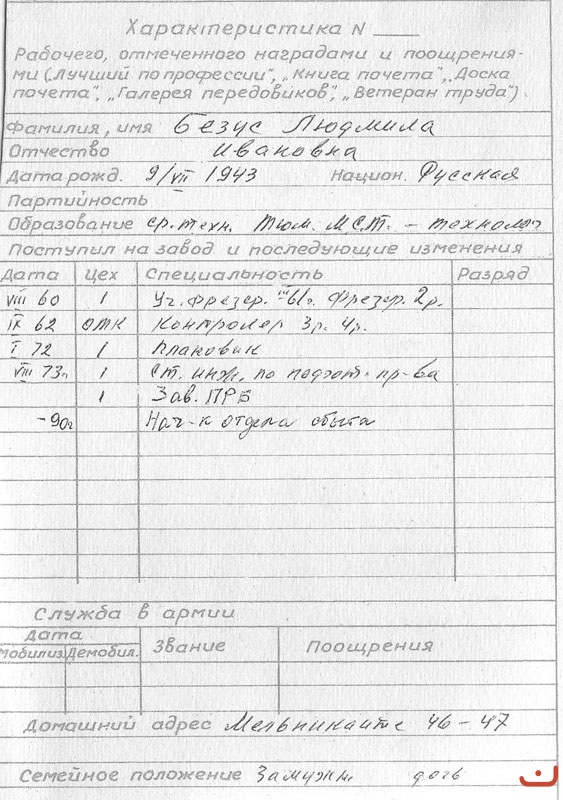 Характеристика N ___
Рабочего, отмеченного наградами и поощрения-
ми („Лучший по профессии", „Книга почета", „Доска
почета", „Галерея передовиков", „Ветеран труда").
Фамилия, имя Безус Людмила
Отчество Ивановна
Дата рожд. 9/VII 1943 Национ. Русская
Партийность
Образование ср. техн. Тюм. М.С.Т. - технолог
Поступил на завод и последующие изменения
Дата Цех Специальность Разряд
VIII 60 1 Уч. фрезер. III 61г. Фрезер. 2р.
IX 62 ОТК Контролер 3р. 4р.
I 72 1 Плановик
VIII 73г. 1 Ст. инж. по подгот. пр-ва
1 Зав. ПРБ
-90г Нач-к отдела сбыта
Служба в армии
Дата Звание Поощрения
мобилиз. Демобил.
Домашний адрес Мельникайте 46-47
Семейное положение Замужн. дочь